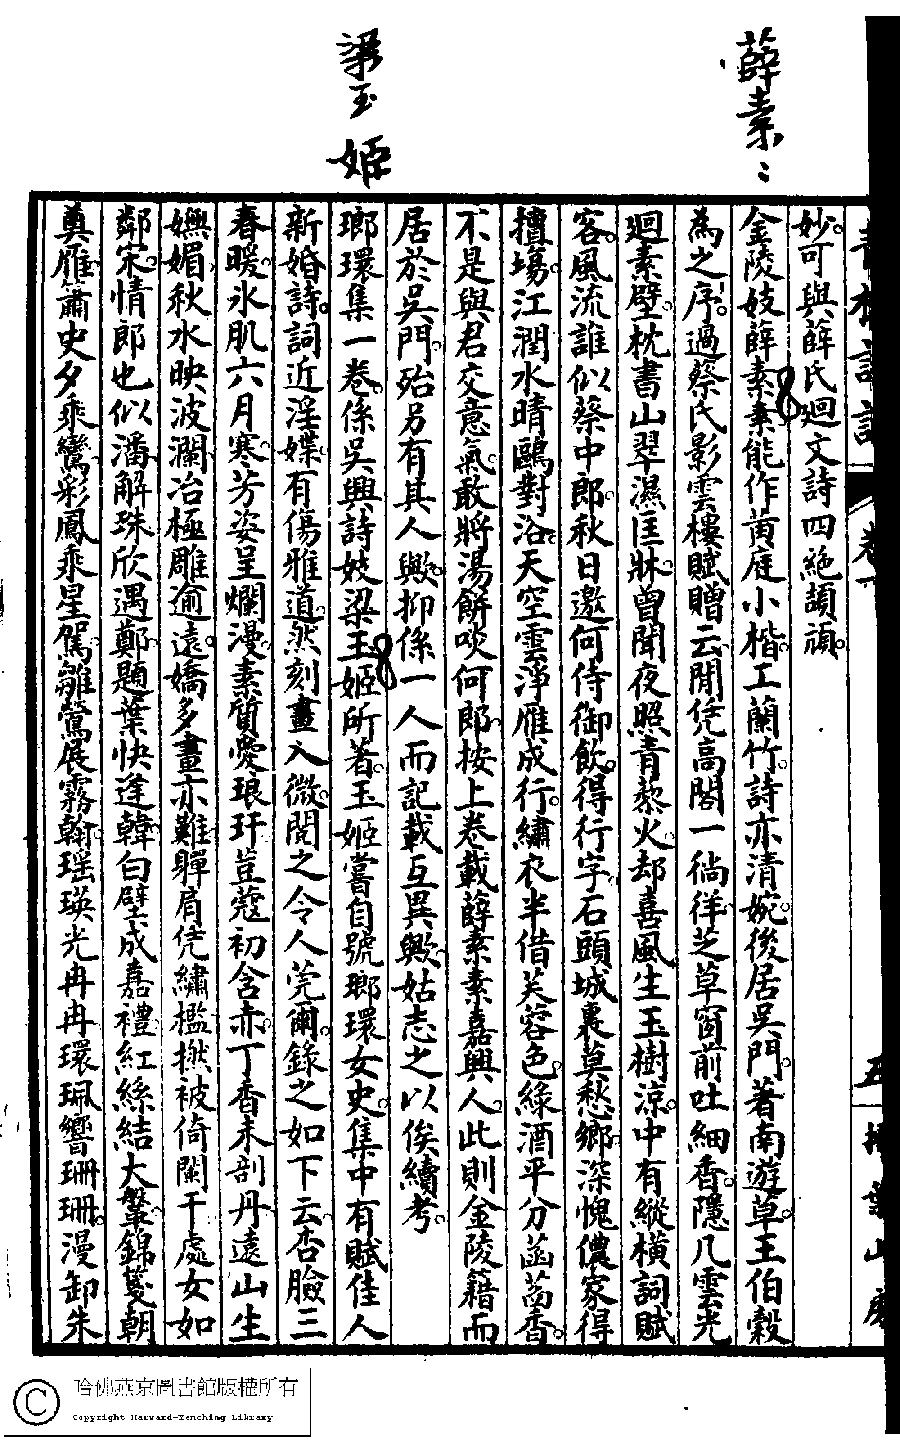 薛素〻
梁玉姬
妙可與薛氏廻文詩四絶頡頏
金陵妓薛素素能作黄庭小楷工蘭竹詩亦清婉後居吳門著南遊草王伯穀
為之序過蔡氏影雲樓賦贈云閒凭高閣一徜徉芝草窗前吐細香隱几雲光
廻素壁枕書山翠濕匡牀曾聞夜照青藜火却喜風生玉樹涼中有縱橫詞賦
客風流誰似蔡中郎秋日邀何侍御飲得行字石頭城裏莫愁鄉深愧儂家得
擅塲江潤水晴鷗對浴天空雲淨雁成行繡衣半借芙蓉色綠酒平分菡萏香
不是與君交意氣敢將湯餅啖何郎按上卷載薛素素嘉興人此則金陵籍而
居於吳門殆另有其人歟抑係一人而記載互異歟姑志之以俟續考
瑯環集一卷係吳興詩妓梁玉姬所著玉姬嘗自號瑯環女史集中有賦佳人
新婚詩詞近淫媟有傷雅道然刻畫入微閱之令人莞爾錄之如下云杏臉三
春暖氷肌六月寒芳姿呈爛漫素質愛琅玕荳蔻初含赤丁香未剖丹遠山生
嫵媚秋水映波瀾冶極雕逾遠嬌多畫亦難嚲肩凭繡檻撚袚倚闌干處女如
鄰宋情郎也似潘解珠欣遇鄭題葉快逢韓白璧成嘉禮紅絲結大鞶錦蔓朝
奠雁簫史夕乘鸞彩鳳乘星駕雛鶯展霧翰瑶瑛光冉冉環珮響珊珊漫卸朱
哈佛燕京圖書館版權所有
Copyright Harvard-Yenching Library